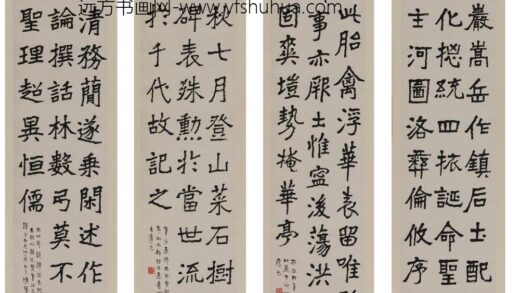 远方书画网-www.yfshuhua.com
巖嵩岳作鎮后土配
化揔統四誕命聖
主河圖洛彝倫攸序
此胎禽浮華表留唯
事亦厥土惟寧後蕩洪
固爽塏勢掩華亭
秋七月登山菜石樹
碑表殊勳於當世流
於千代故記之
清務蕑遂乘閑述作
論撰話林數弓莫不
聖理超異恒儒